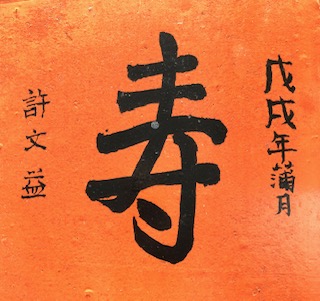 戊戌年蒲月
寿
許文益